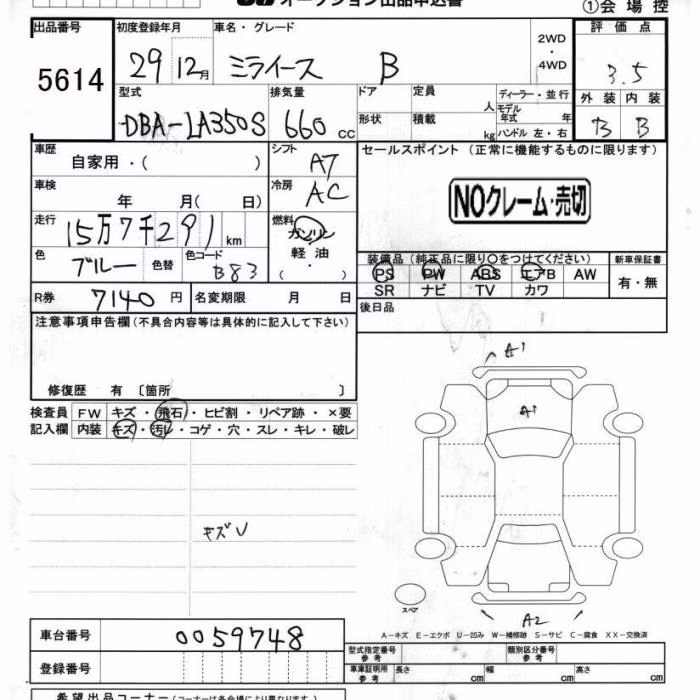 オークション出品申込書
①会場控
出品番号 初度登録年月 車名・グレード 評価点
5614 29 12月 ミライース B 2WD・4WD 3.5
型式 排気量 ドア 定員 人 ディーラー・並行 外装 内装
DBA-LA350S 660cc 形状 積載 kg モデル年式 年 B B
ハンドル 左・右
車歴 シフト セールスポイント (正常に機能するものに限ります)
自家用・( ) AT
車検 冷房 NOクレーム・売切
年 月(日) AC
走行 燃料
15万7千291km ガソリン
色 色替 色コード 軽油
ブルー B83 ・( )
装備品(純正品に限り○をつけてください) 新車保証書
PS PW ABS エアB AW 有・無
SR ナビ TV カワ
R券 7140円 名変期限 月 日 後日品
注意事項申告欄(不具合内容等は具体的に記入して下さい)
修復歴 有 〔箇所 〕
検査員 FW キズ・飛石・ヒビ割・リペア跡・×要
記入欄 内装 キズ・汚レ・コゲ・穴・スレ・キレ・破レ
A1
A1
キズU
スペア
A2
A-キズ E-エクボ U-凹み W-補修跡 S-サビ C-腐食 XX-交換済
車台番号 0059748
型式指定番号 参考 類別区分番号 参考
登録番号 車庫証明用 参考 長さ cm 幅 cm 高さ cm
希望出品コーナー(コーナーは各会場により異なります。)